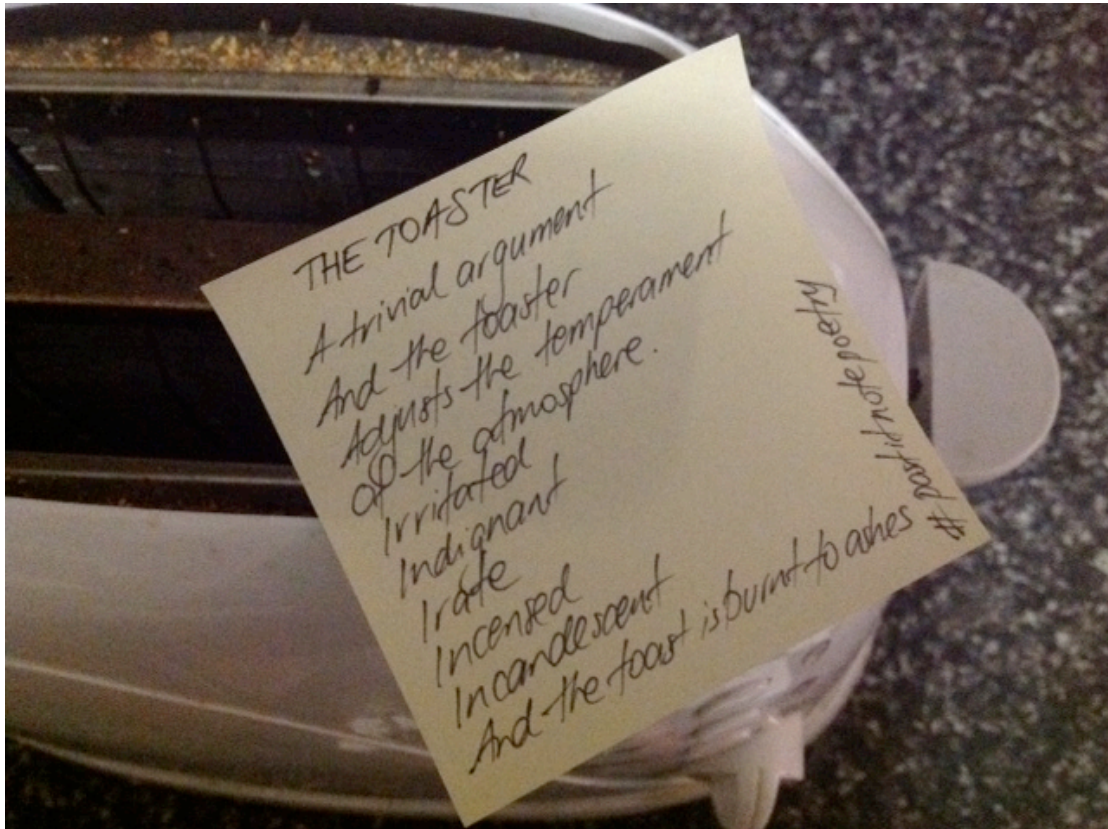 THE TOASTER
A trivial argument
And the toaster
Adjusts the temperament
of the atmosphere.
Irritated
Indignant
Irate
Incensed
Incandescent
And the toast is burnt to ashes
#postitnotepoetry